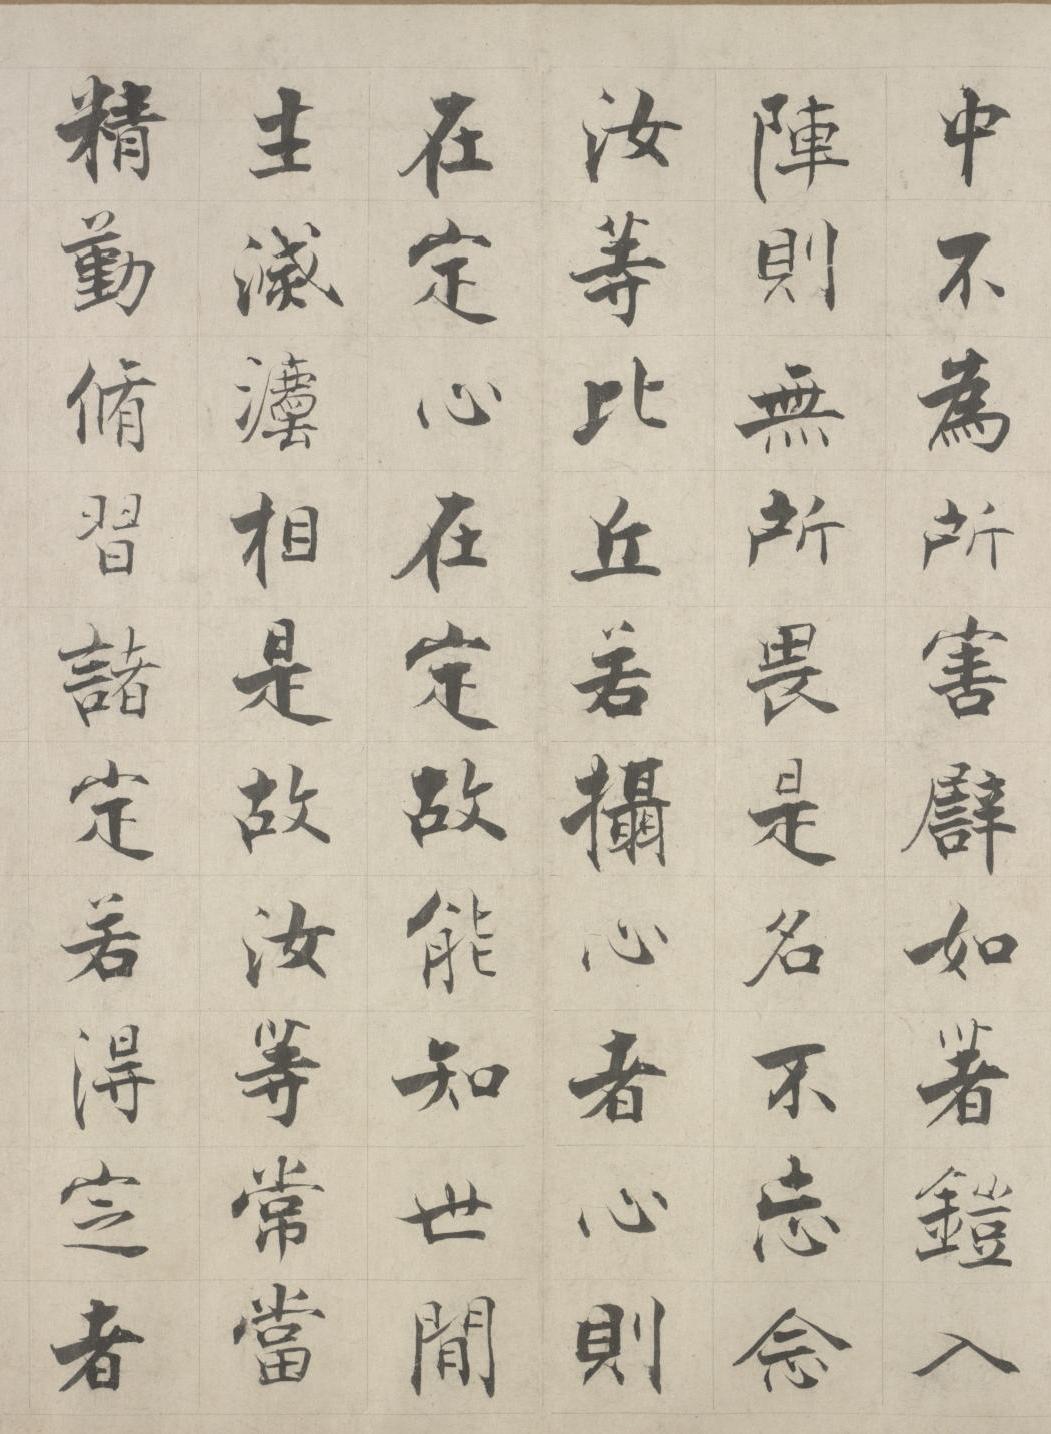 中不為所害譬如著鎧入
陣則無所畏是名不忘念
汝等比丘若攝心者心則
在定心在定故能知世間
生滅灋相是故汝等常當
精勤脩習諸定若得定者